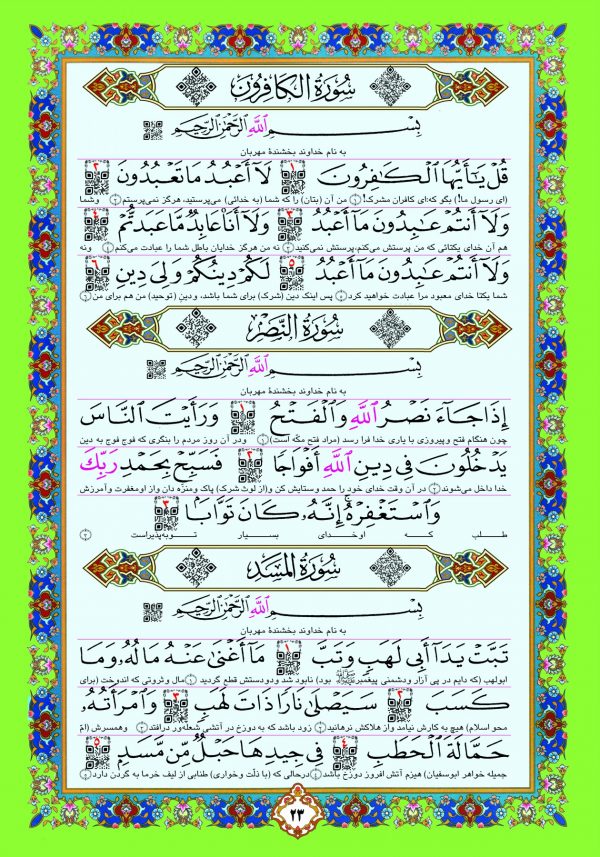 سُورَةُ الْكَافِرُونَ
بِسْمِ اللَّهِ الرَّحْمَٰنِ الرَّحِيمِ
به نام خداوند بخشندهٔ مهربان
قُلْ يَا أَيُّهَا الْكَافِرُونَ ١ لَا أَعْبُدُ مَا تَعْبُدُونَ ٢
(ای رسول ما!) بگو که‌ای کافران مشرک! (۱) من آن (بتان) را که شما (به خدائی) می‌پرستید، هرگز نمی‌پرستم (۲) وشما
وَلَا أَنتُمْ عَابِدُونَ مَا أَعْبُدُ ٣ وَلَا أَنَا عَابِدٌ مَّا عَبَدتُّمْ ٤
هم آن خدای یکتائی که من پرستش می‌کنم، پرستش نمی‌کنید (۳) نه من هرگز خدایان باطل شما را عبادت می‌کنم (۴) ونه
وَلَا أَنتُمْ عَابِدُونَ مَا أَعْبُدُ ٥ لَكُمْ دِينُكُمْ وَلِيَ دِينِ ٦
شما یکتا خدای معبود مرا عبادت خواهید کرد (۵) پس اینک دین (شرک) برای شما باشد، ودین (توحید) من هم برای من (۶)
سُورَةُ النَّصْرِ
بِسْمِ اللَّهِ الرَّحْمَٰنِ الرَّحِيمِ
به نام خداوند بخشندهٔ مهربان
إِذَا جَاءَ نَصْرُ اللَّهِ وَالْفَتْحُ ١ وَرَأَيْتَ النَّاسَ
چون هنگام فتح و پیروزی با یاری خدا فرا رسد (مراد فتح مکّه است) (۱) ودر آن روز مردم را بنگری که فوج فوج به دین
يَدْخُلُونَ فِي دِينِ اللَّهِ أَفْوَاجًا ٢ فَسَبِّحْ بِحَمْدِ رَبِّكَ
خدا داخل می‌شوند (۲) در آن وقت خدای خود را حمد وستایش کن و(از لوث شرک) پاک ومنزّه دان واز اومغفرت وآمرزش
وَاسْتَغْفِرْهُ إِنَّهُ كَانَ تَوَّابًا ٣
طلب که اوخدای بسیار توبه‌پذیراست (۳)
سُورَةُ الْمَسَدِ
بِسْمِ اللَّهِ الرَّحْمَٰنِ الرَّحِيمِ
به نام خداوند بخشندهٔ مهربان
تَبَّتْ يَدَا أَبِي لَهَبٍ وَتَبَّ ١ مَا أَغْنَىٰ عَنْهُ مَالُهُ وَمَا
ابولهب (که دایم در پی آزار ودشمنی پیغمبر بود) نابود شد ودودستش قطع گردید (۱) مال وثروتی که اندوخت (برای
كَسَبَ ٢ سَيَصْلَىٰ نَارًا ذَاتَ لَهَبٍ ٣ وَامْرَأَتُهُ
محو اسلام) هیچ به کارش نیامد واز هلاکش نرهانید (۲) زود باشد که به دوزخ در آتشی شعله‌ور درافتد (۳) وهمسرش (امّ
حَمَّالَةَ الْحَطَبِ ٤ فِي جِيدِهَا حَبْلٌ مِّن مَّسَدٍ ٥
جمیله خواهر ابوسفیان) هیزم آتش افروز دوزخ باشد (۴) درحالی که (با ذلّت وخواری) طنابی از لیف خرما به گردن دارد (۵)
۲۳